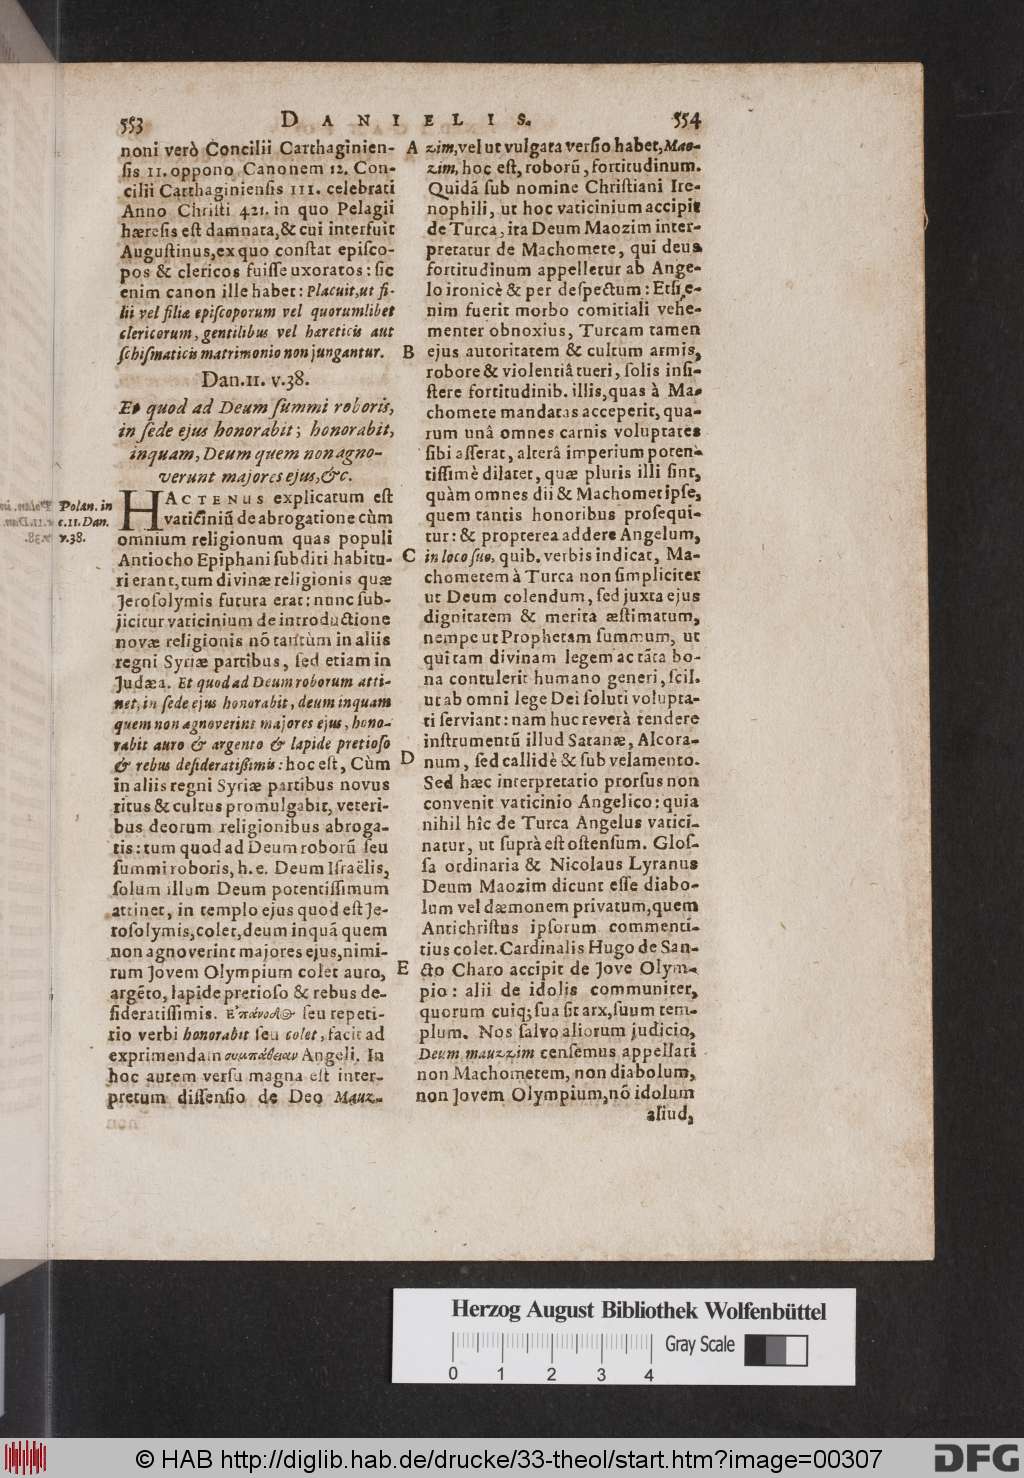 553
DANIELIS.
554
noni verò Concilii Carthaginien-
sis II. oppono Canonem 12. Con-
cilii Carthaginiensis III. celebrati
Anno Christi 421. in quo Pelagii
hæresis est damnata, & cui interfuit
Augustinus, ex quo constat episco-
pos & clericos fuisse uxoratos: sic
enim canon ille habet: Placuit, ut fi-
lii vel filiæ episcoporum vel quorumlibet
clericorum, gentilibus vel hæreticis aut
schismaticis matrimonio non jungantur.
Dan. II. v. 38.
Et quod ad Deum summi roboris,
in sede ejus honorabit; honorabit,
inquam, Deum quem non agno-
verunt majores ejus, &c.
Polan. in
c. II. Dan.
v. 38.
HACTENUS explicatum est
vaticiniũ de abrogatione cùm
omnium religionum quas populi
Antiocho Epiphani subditi habitu-
ri erant, tum divinæ religionis quæ
Jerosolymis futura erat: nunc sub-
jicitur vaticinium de introductione
novæ religionis nõ tantùm in aliis
regni Syriæ partibus, sed etiam in
Judæa. Et quod ad Deum roborum atti-
net, in sede ejus honorabit, deum inquam
quem non agnoverint majores ejus, hono-
rabit auro & argento & lapide pretioso
& rebus desideratissimis: hoc est, Cùm
in aliis regni Syriæ partibus novus
ritus & cultus promulgabit, veteri-
bus deorum religionibus abroga-
tis: tum quod ad Deum roborũ seu
summi roboris, h. e. Deum Israëlis,
solum illum Deum potentissimum
attinet, in templo ejus quod est Je-
rosolymis, colet, deum inquã quem
non agnoverint majores ejus, nimi-
rum Jovem Olympium colet auro,
argẽto, lapide pretioso & rebus de-
sideratissimis. seu repeti-
tio verbi honorabit seu colet, facit ad
exprimendam συμπάθειαν Angeli. In
hoc autem versu magna est inter-
pretum dissensio de Deo Mauz-
A zim, vel ut vulgata versio habet, Mao-
zim, hoc est, roborũ, fortitudinum.
Quidã sub nomine Christiani Ire-
nophili, ut hoc vaticinium accipit
de Turca, ita Deum Maozim inter-
pretatur de Machomete, qui deus
fortitudinum appelletur ab Ange-
lo ironicè & per despectum: Etsi e-
nim fuerit morbo comitiali vehe-
menter obnoxius, Turcam tamen
B ejus autoritatem & cultum armis,
robore & violentiâ tueri, solis insi-
stere fortitudinib. illis, quas à Ma-
chomete mandatas acceperit, qua-
rum unâ omnes carnis voluptates
sibi asserat, alterâ imperium poten-
tissimè dilatet, quæ pluris illi sint,
quàm omnes dii & Machomet ipse,
quem tantis honoribus prosequi-
tur: & propterea addere Angelum,
C in loco suo, quib. verbis indicat, Ma-
chometem à Turca non simpliciter
ut Deum colendum, sed juxta ejus
dignitatem & merita æstimatum,
nempe ut Prophetam summum, ut
qui tam divinam legem ac tãta bo-
na contulerit humano generi, scil.
ut ab omni lege Dei soluti volupta-
ti serviant: nam huc reverà tendere
instrumentũ illud Satanæ, Alcora-
D num, sed callidè & sub velamento.
Sed hæc interpretatio prorsus non
convenit vaticinio Angelico: quia
nihil hîc de Turca Angelus vatici-
natur, ut suprà est ostensum. Glos-
sa ordinaria & Nicolaus Lyranus
Deum Maozim dicunt esse diabo-
lum vel dæmonem privatum, quem
Antichristus ipsorum commenti-
tius colet. Cardinalis Hugo de San-
E cto Charo accipit de Jove Olym-
pio: alii de idolis communiter,
quorum cuiq; sua sit arx, suum tem-
plum. Nos salvo aliorum judicio,
Deum mauzzim censemus appellari
non Machometem, non diabolum,
non Jovem Olympium, nõ idolum
aliud,
Herzog August Bibliothek Wolfenbüttel
Gray Scale
0 1 2 3 4
© HAB http://diglib.hab.de/drucke/33-theol/start.htm?image=00307
DFG